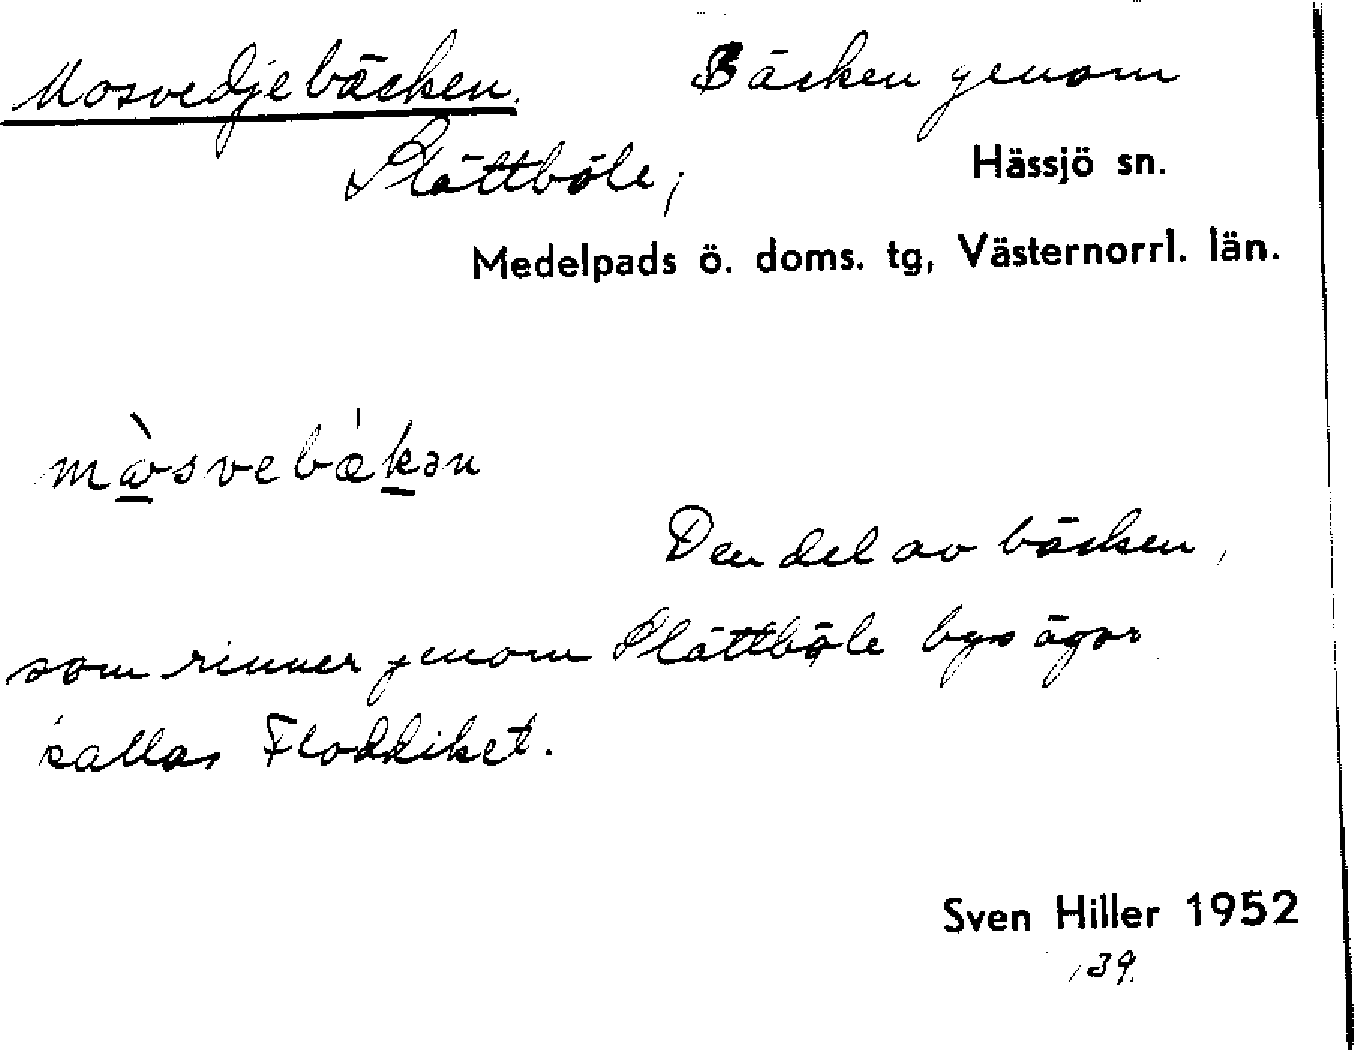 Mosvedjebäcken. Bäcken genom
Slättböle, Hässjö sn.
Medelpads ö. doms. tg, Västernorrl. län.
Den del av bäcken,
som rinner genom Slättböle bys ägor
kallas Floddiket.
Sven Hiller 1952